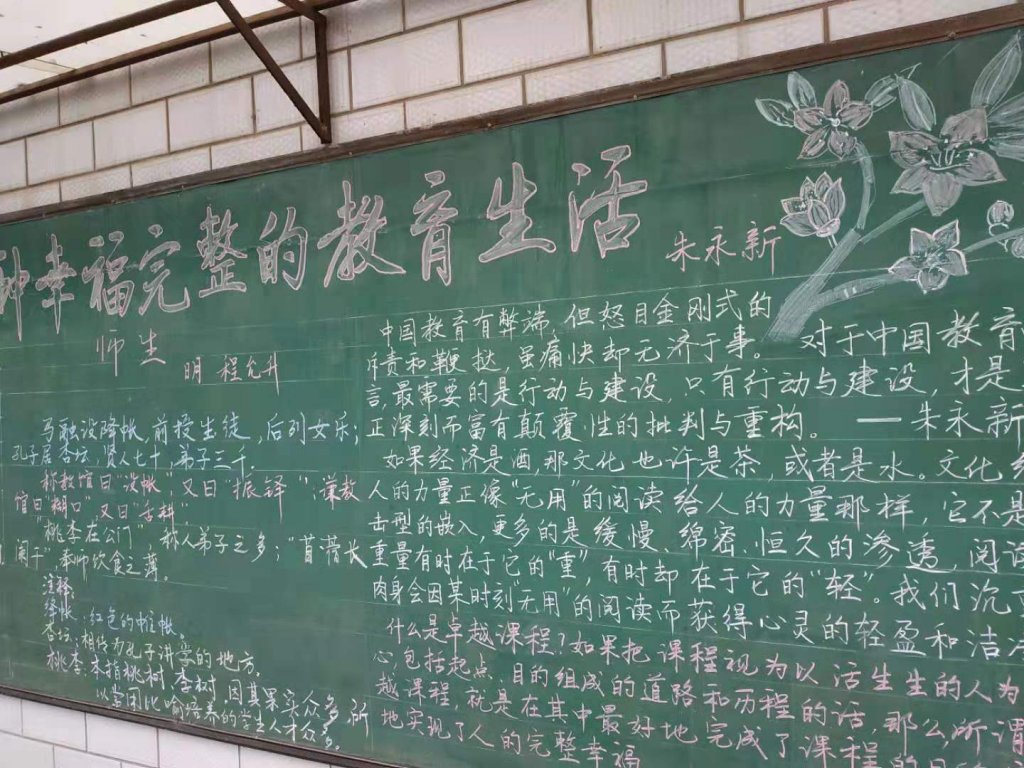 种幸福完整的教育生活
朱永新
师生
明 程允升
马融设绛帐,前授生徒,后列女乐;
孔子居杏坛,贤人七十,弟子三千。
称教馆曰"设帐",又曰"振铎";谦教
馆曰"糊口",又曰"舌耕"
"桃李在公门",称人弟子之多;"苜蓿长
阑干",奉师饮食之薄。
注释:
绛帐:红色的帐。
杏坛:相传为孔子讲学的地方。
桃李:本指桃树、李树,因其果实众多,所
以常用比喻培养的学生人才众多。
中国教育有弊端,但怒目金刚式的
斥责和鞭挞,虽痛快却无济于事。对于中国教育
言,最需要的是行动与建设,只有行动与建设,才是
正深刻而富有颠覆性的批判与重构。——朱永新
如果经济是酒,那文化也许是茶,或者是水。文化
人的力量正像"无用"的阅读给人的力量那样,它不是
击型的嵌入,更多的是缓慢、绵密、恒久的渗透,阅读
重量有时在于它的"重",有时却在于它的"轻"。我们沉
肉身会因某时刻"无用"的阅读而获得心灵的轻盈和洁净
什么是卓越课程?如果把课程视为以活生生的人为
心,包括起点、目的组成的道路和历程的话,那么,所谓
越课程,就是在其中最好地完成了课程的
地实现了人的完整幸福